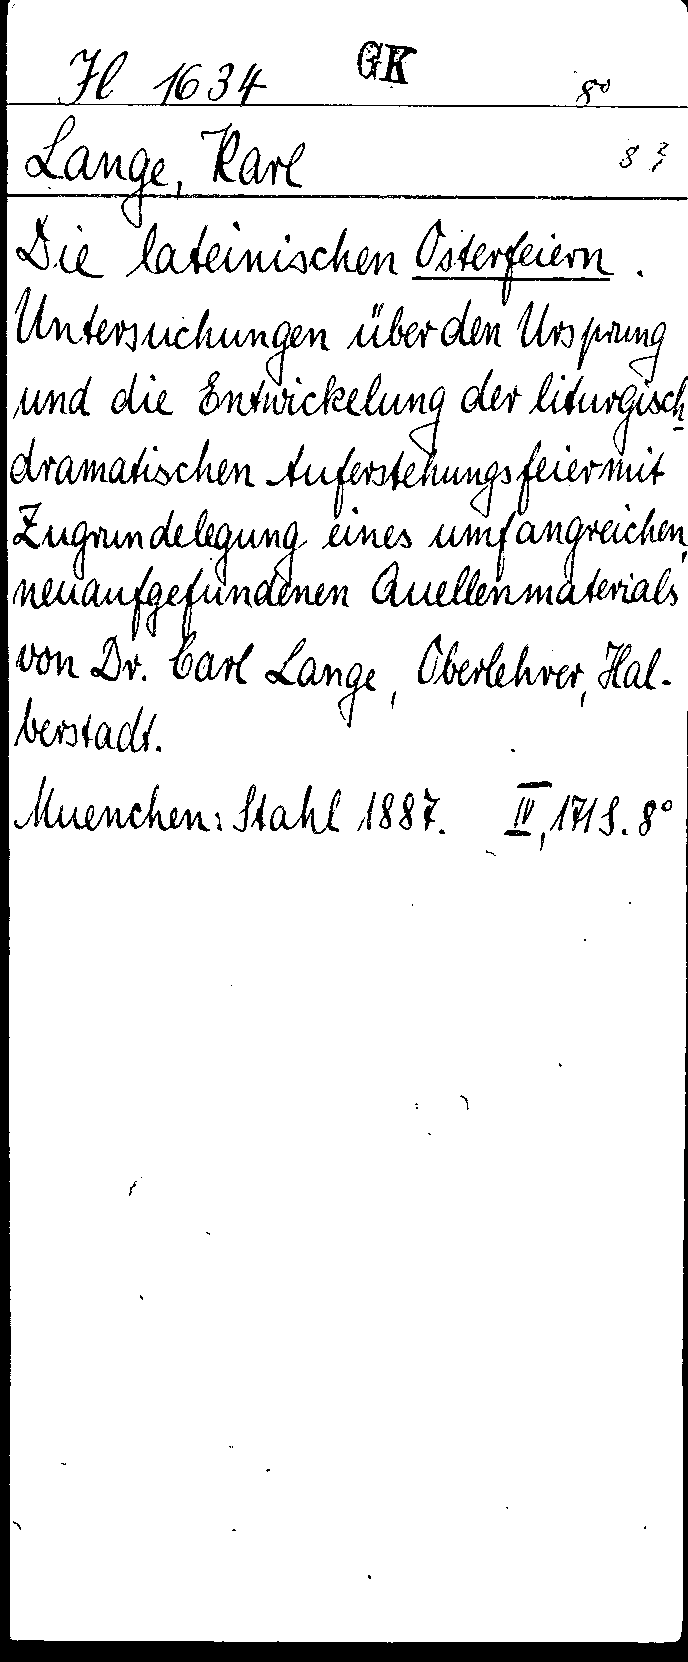 Jl 1634 GK 8°
Lange, Karl
Die lateinischen Osterfeiern.
Untersuchungen über den Ursprung
und die Entwickelung der liturgisch-
dramatischen Auferstehungsfeier mit
Zugrundelegung eines umfangreichen,
neuaufgefundenen Quellenmaterials
von Dr. Carl Lange, Oberlehrer, Hal-
berstadt.
Muenchen: Stahl 1887. IV, 171 S. 8°